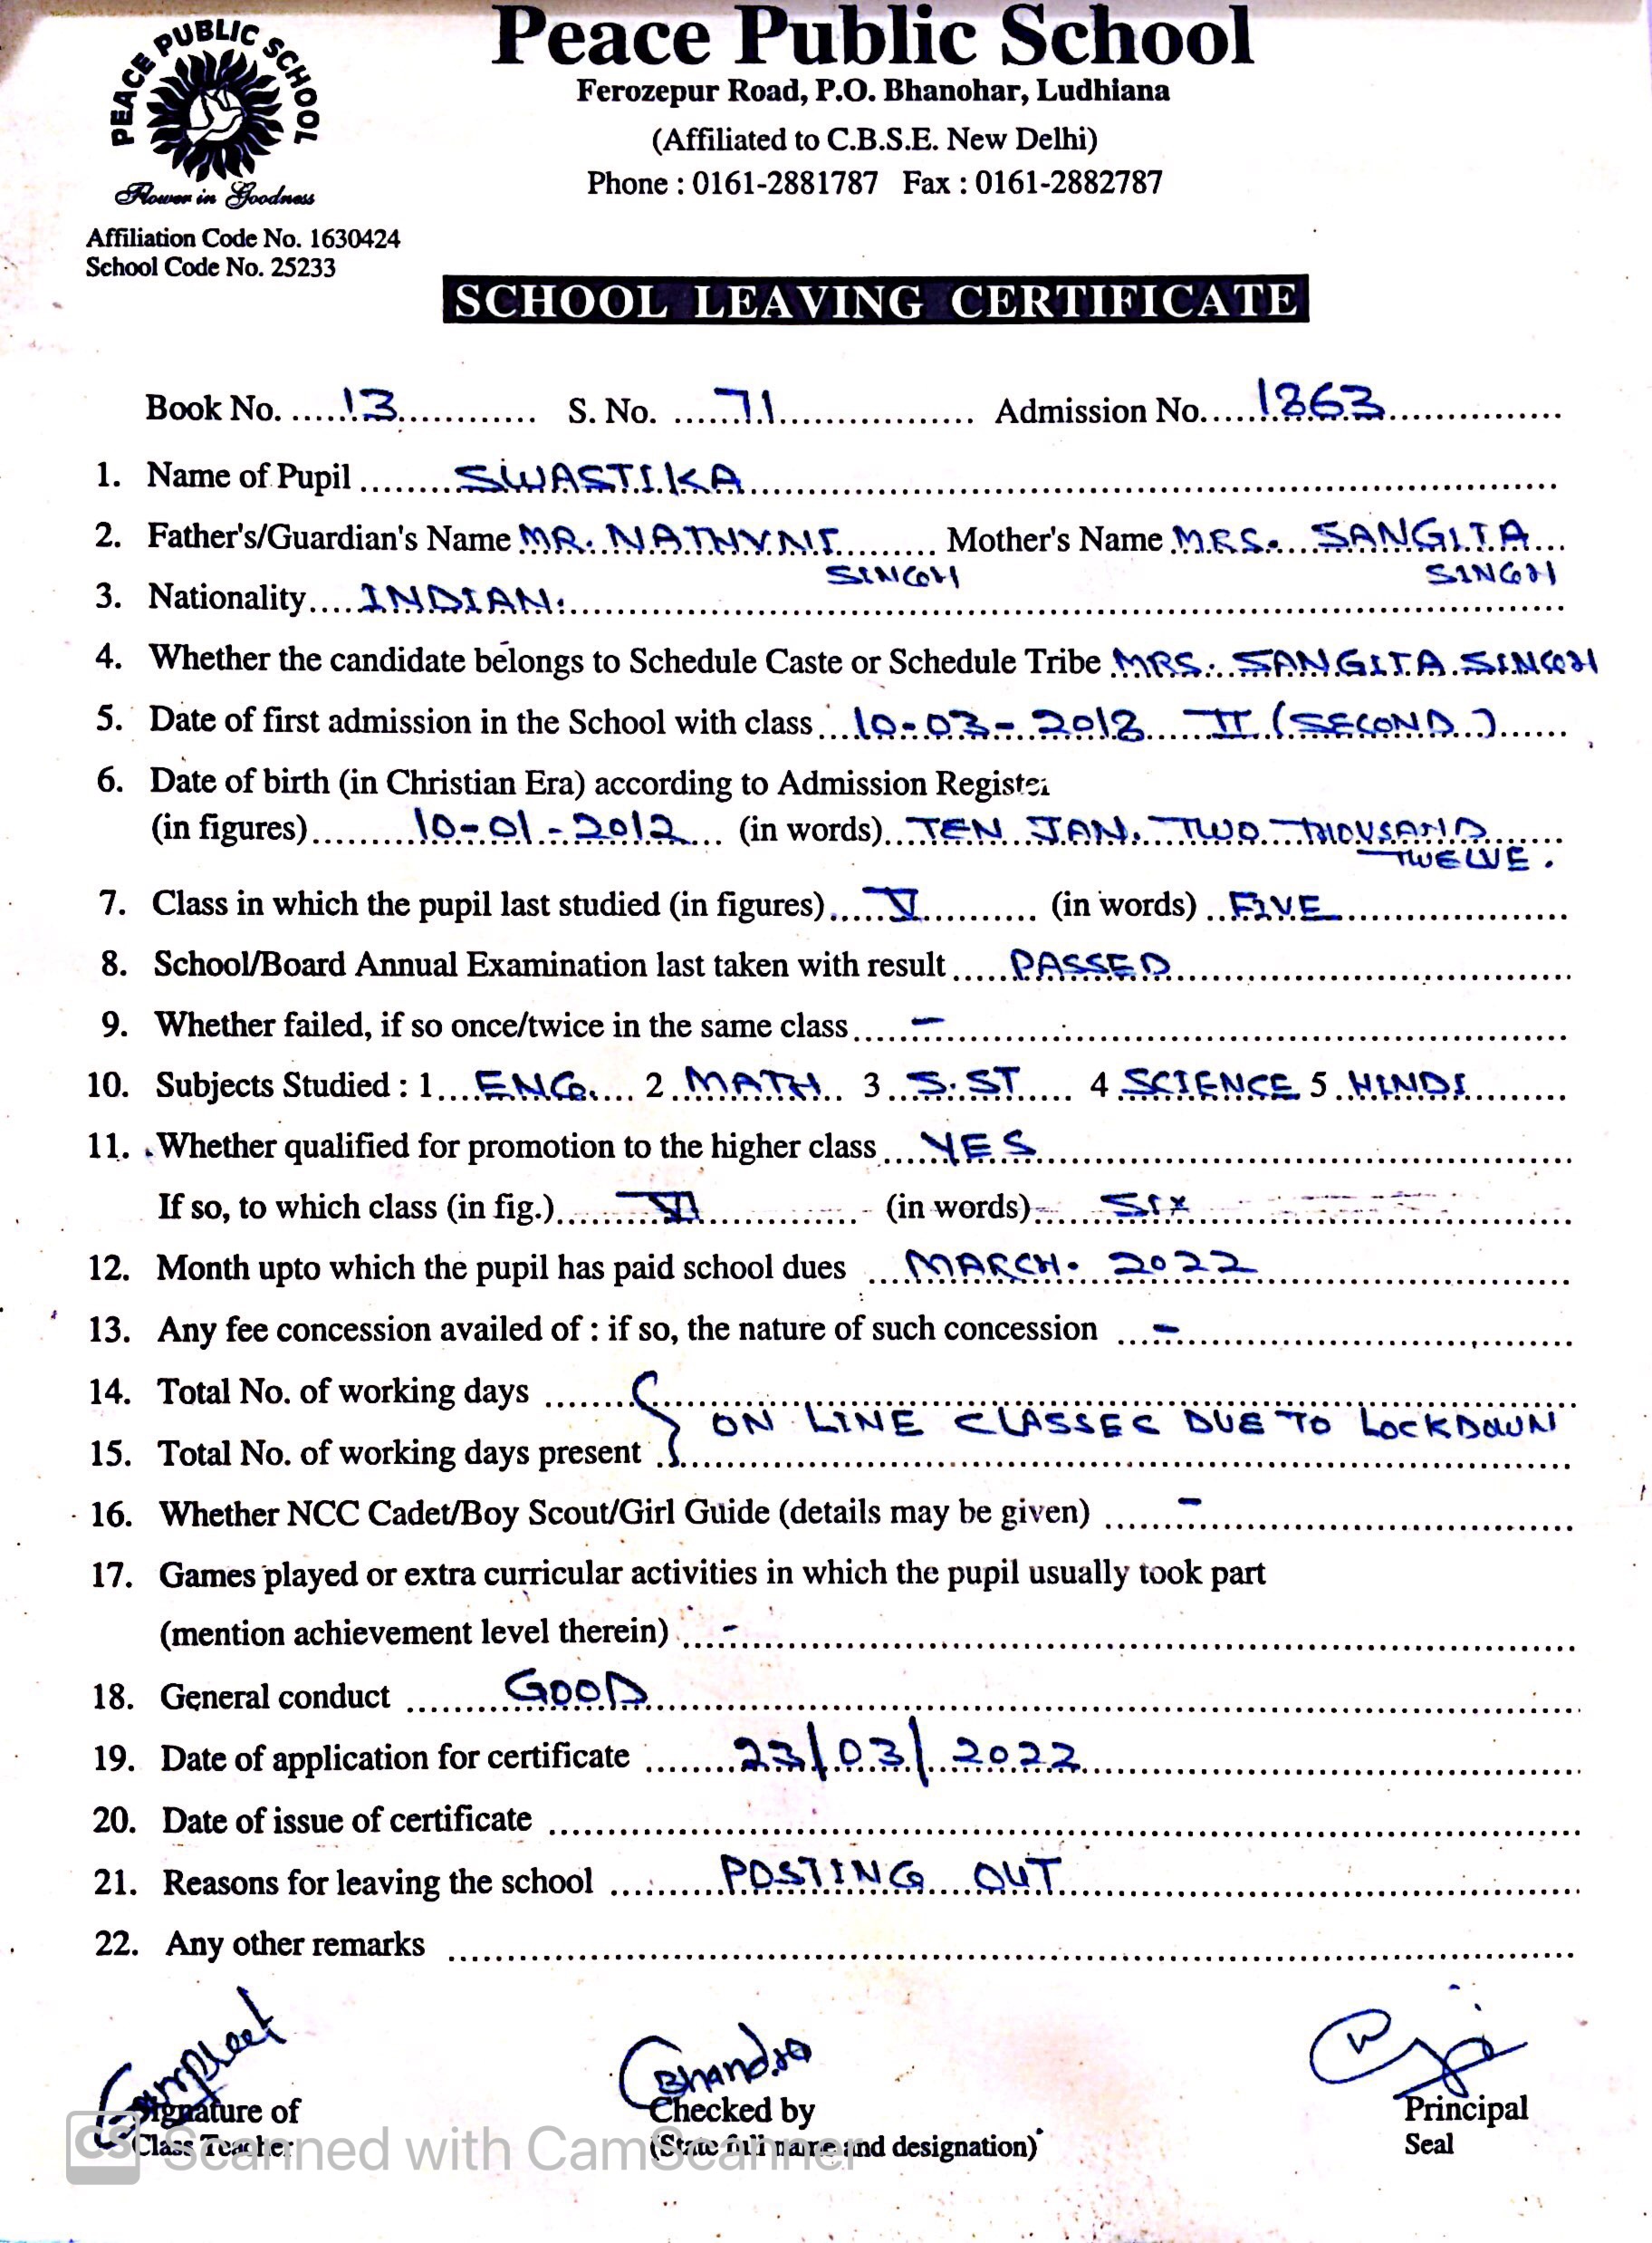 PEACE PUBLIC SCHOOL
Flower in Goodness
Affiliation Code No. 1630424
School Code No. 25233
Peace Public School
Ferozepur Road, P.O. Bhanohar, Ludhiana
(Affiliated to C.B.S.E. New Delhi)
Phone : 0161-2881787 Fax : 0161-2882787
SCHOOL LEAVING CERTIFICATE
Book No. 13 S. No. 71 Admission No. 1863
1. Name of Pupil SWASTIKA
2. Father's/Guardian's Name MR. NATHUNI SINGH Mother's Name MRS. SANGITA SINGH
3. Nationality INDIAN.
4. Whether the candidate belongs to Schedule Caste or Schedule Tribe MRS. SANGITA SINGH
5. Date of first admission in the School with class 10-03-2018 II (SECOND)
6. Date of birth (in Christian Era) according to Admission Register
(in figures) 10-01-2012 (in words) TEN JAN. TWO THOUSAND
TWELVE.
7. Class in which the pupil last studied (in figures) V (in words) FIVE
8. School/Board Annual Examination last taken with result PASSED
9. Whether failed, if so once/twice in the same class -
10. Subjects Studied : 1 ENG. 2 MATH 3 S.ST 4 SCIENCE 5 HINDI
11. Whether qualified for promotion to the higher class YES
If so, to which class (in fig.) VI (in words) SIX
12. Month upto which the pupil has paid school dues MARCH. 2022
13. Any fee concession availed of : if so, the nature of such concession -
14. Total No. of working days
ON LINE CLASSES DUE TO LOCKDOWN
15. Total No. of working days present
16. Whether NCC Cadet/Boy Scout/Girl Guide (details may be given) -
17. Games played or extra curricular activities in which the pupil usually took part
(mention achievement level therein) -
18. General conduct GOOD
19. Date of application for certificate 23/03/2022
20. Date of issue of certificate
21. Reasons for leaving the school POSTING OUT
22. Any other remarks
Signature of Checked by Principal
Class Teacher (State full name and designation) Seal
CS Scanned with CamScanner